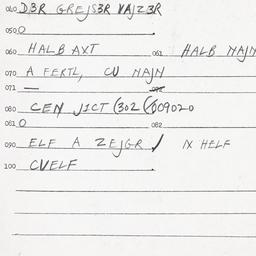 040 D3R GREJS3R VAJZ3R
050 0
060 HALB AXT 061 HALB NAJN
070 A FERTL, CU NAJN
071 — 072
080 CEN J1CT (302 (609020
081 0 082
090 ELF A ZEJGR / IX HELF
100 CVELF